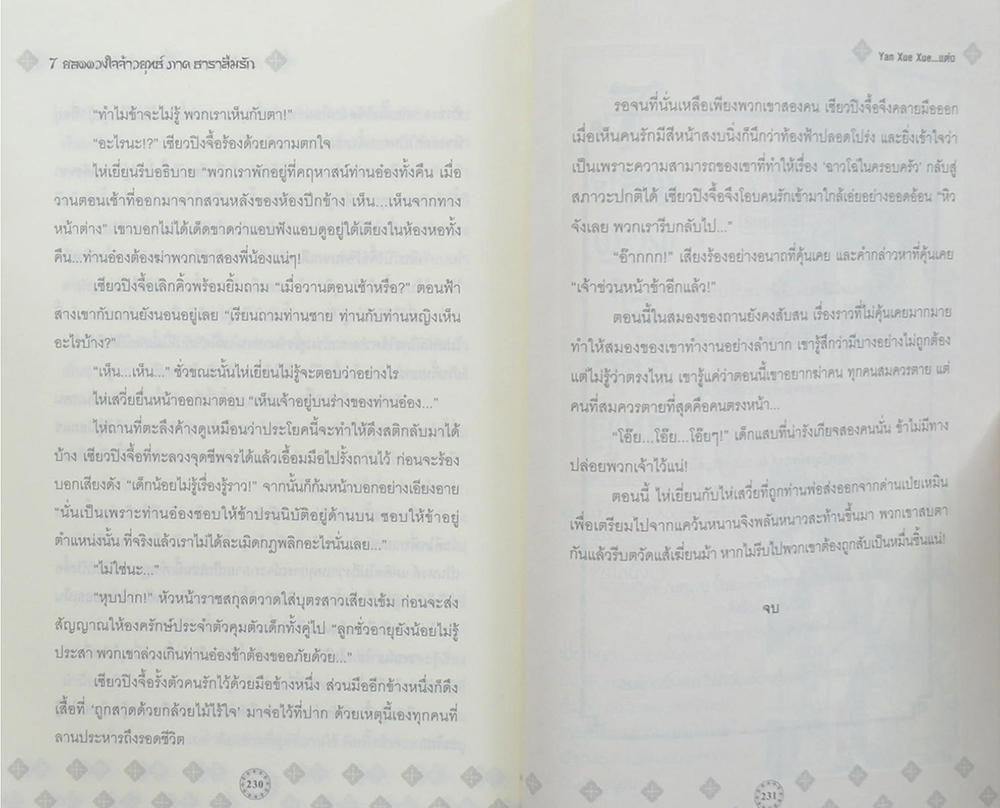 7 ยอดดวงใจจ้าวยุทธ์ ภาค ธาราลืมรัก
“ทำไมข้าจะไม่รู้ พวกเราเห็นกับตา!”
“อะไรนะ!?” เซียวปิงจื้อร้องด้วยความตกใจ
ไห่เยี่ยนรีบอธิบาย “พวกเราพักอยู่ที่คฤหาสน์ท่านอ๋องทั้งคืน เมื่อ
วานตอนเช้าที่ออกมาจากสวนหลังของห้องปีกข้าง เห็น...เห็นจากทาง
หน้าต่าง” เขาบอกไม่ได้เด็ดขาดว่าแอบฟังแอบดูอยู่ใต้เตียงในห้องหอทั้ง
คืน...ท่านอ๋องต้องฆ่าพวกเขาสองพี่น้องแน่ๆ!
เซียวปิงจื้อเลิกคิ้วพร้อมยิ้มถาม “เมื่อวานตอนเช้าหรือ?” ตอนฟ้า
สางเขากับถานยังนอนอยู่เลย “เรียนถามท่านชาย ท่านกับท่านหญิงเห็น
อะไรบ้าง?”
“เห็น...เห็น...” ชั่วขณะนั้นไห่เยี่ยนไม่รู้จะตอบว่าอย่างไร
ไห่เสวี่ยยื่นหน้าออกมาตอบ “เห็นเจ้าอยู่บนร่างของท่านอ๋อง...”
ไห่ถานที่ตะลึงค้างดูเหมือนว่าประโยคนี้จะทำให้ดึงสติกลับมาได้
บ้าง เซียวปิงจื้อที่ทะลวงจุดชีพจรได้แล้วเอื้อมมือไปรั้งถานไว้ ก่อนจะร้อง
บอกเสียงดัง “เด็กน้อยไม่รู้เรื่องรู้ราว!” จากนั้นก็ก้มหน้าบอกอย่างเอียงอาย
“นั่นเป็นเพราะท่านอ๋องชอบให้ข้าปรนนิบัติอยู่ด้านบน ชอบให้ข้าอยู่
ตำแหน่งนั้น ที่จริงแล้วเราไม่ได้ละเมิดกฎพลิกอะไรนั่นเลย...”
“ไม่ใช่นะ...”
“หุบปาก!” หัวหน้าราชสกุลตวาดใส่บุตรสาวเสียงเข้ม ก่อนจะส่ง
สัญญาณให้องครักษ์ประจำตัวคุมตัวเด็กทั้งคู่ไป “ลูกชั่วอายุยังน้อยไม่รู้
ประสา พวกเขาล่วงเกินท่านอ๋องข้าต้องขออภัยด้วย...”
เซียวปิงจื้อรั้งตัวคนรักไว้ด้วยมือข้างหนึ่ง ส่วนมืออีกข้างหนึ่งก็ดึง
เสื้อที่ ‘ถูกสาดด้วยกล้วยไม้ไร้ใจ’ มาจ่อไว้ที่ปาก ด้วยเหตุนี้เองทุกคนที่
ลานประหารถึงรอดชีวิต
230
Yan Xue Xue...แต่ง
รอจนที่นั่นเหลือเพียงพวกเขาสองคน เซียวปิงจื้อจึงคลายมือออก
เมื่อเห็นคนรักมีสีหน้าสงบนิ่งก็นึกว่าท้องฟ้าปลอดโปร่ง และยิ่งเข้าใจว่า
เป็นเพราะความสามารถของเขาที่ทำให้เรื่อง ‘ฉาวโฉ่ในครอบครัว’ กลับสู่
สภาวะปกติได้ เซียวปิงจื้อจึงโอบคนรักเข้ามาใกล้เอ่ยอย่างออดอ้อน “หิว
จังเลย พวกเรารีบกลับไป...”
“อ๊ากกก!” เสียงร้องอย่างอนาถที่คุ้นเคย และคำกล่าวหาที่คุ้นเคย
“เจ้าข่วนหน้าข้าอีกแล้ว!”
ตอนนี้ในสมองของถานยังคงสับสน เรื่องราวที่ไม่คุ้นเคยมากมาย
ทำให้สมองของเขาทำงานอย่างลำบาก เขารู้สึกว่ามีบางอย่างไม่ถูกต้อง
แต่ไม่รู้ว่าตรงไหน เขารู้แค่ว่าตอนนี้เขาอยากฆ่าคน ทุกคนสมควรตาย แต่
คนที่สมควรตายที่สุดคือคนตรงหน้า...
“โอ๊ย...โอ๊ย...โอ๊ยๆ!” เด็กแสบที่น่ารังเกียจสองคนนั่น ข้าไม่มีทาง
ปล่อยพวกเจ้าไว้แน่!
ตอนนี้ ไห่เยี่ยนกับไห่เสวี่ยที่ถูกท่านพ่อส่งออกจากด่านเปยเหมิน
เพื่อเตรียมไปจากแคว้นหนานจิงพลันหนาวสะท้านขึ้นมา พวกเขาสบตา
กันแล้วรีบตวัดแส้เฆี่ยนม้า หากไม่รีบไปพวกเขาต้องถูกสับเป็นหมื่นชิ้นแน่!
จบ
231